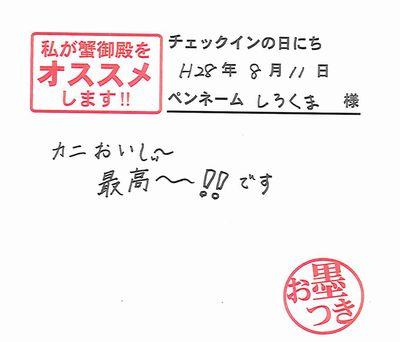 私が蟹御殿を
オススメ
します!!
チェックインの日にち
H28年 8月11日
ペンネーム しろくま 様
カニおいしぃ〜
最高〜!!です
お墨
つき